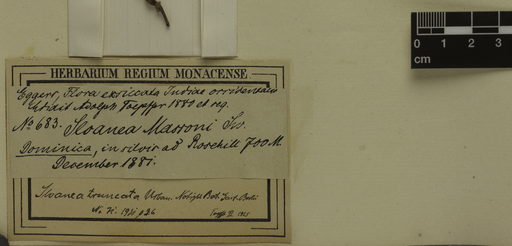 HERBARIUM REGIUM MONACENSE
Eggers, Flora exsiccata Indiae occidentalis
Adolph Toepffer 1880 et seq.
No. 683. Sloanea Massoni Sw.
Dominica, in silvis ad Rosehill 700 M.
December 1881.
Sloanea truncata Urban. Notizbl. Bot. Gart. Berlin
cm